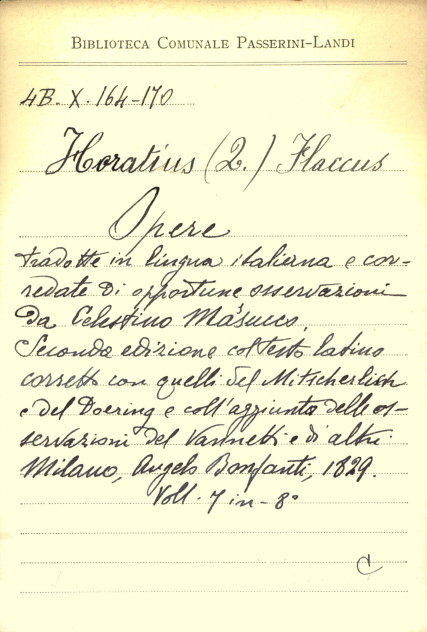 BIBLIOTECA COMUNALE PASSERINI-LANDI
4B. X. 164-170
Horatius (Q.) Flaccus
Opere
tradotte in lingua italiana e cor-
redate di opportune osservazioni
da Celestino Masucco.
Seconda edizione col testo latino
corretto con quelli del Mitscherlich
e del Doering e coll'aggiunta delle os-
servazioni del Vannetti e di altri.
Milano, Angelo Bonfanti, 1829.
Voll. 7 in-8°
C